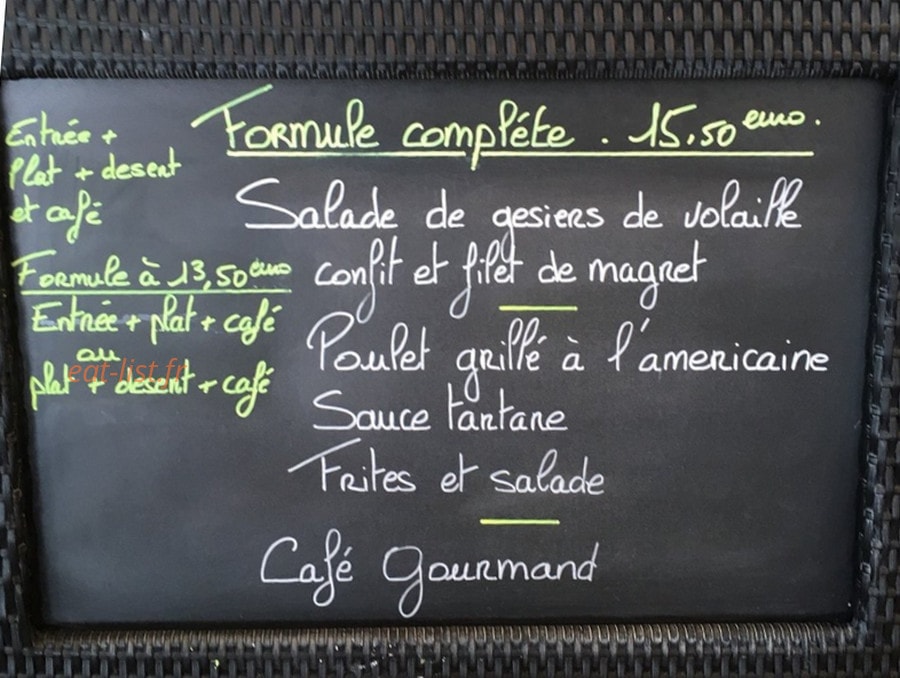 Formule compléte . 15,50 euro.
Entrée +
plat + desent
et café
Formule à 13,50 euro
Entrée + plat + café
au
plat + desent + café
eat-list.fr
Salade de gesiers de volaille
confit et filet de magret
Poulet grillé à l'americaine
Sauce tartare
Frites et salade
Café Gourmand